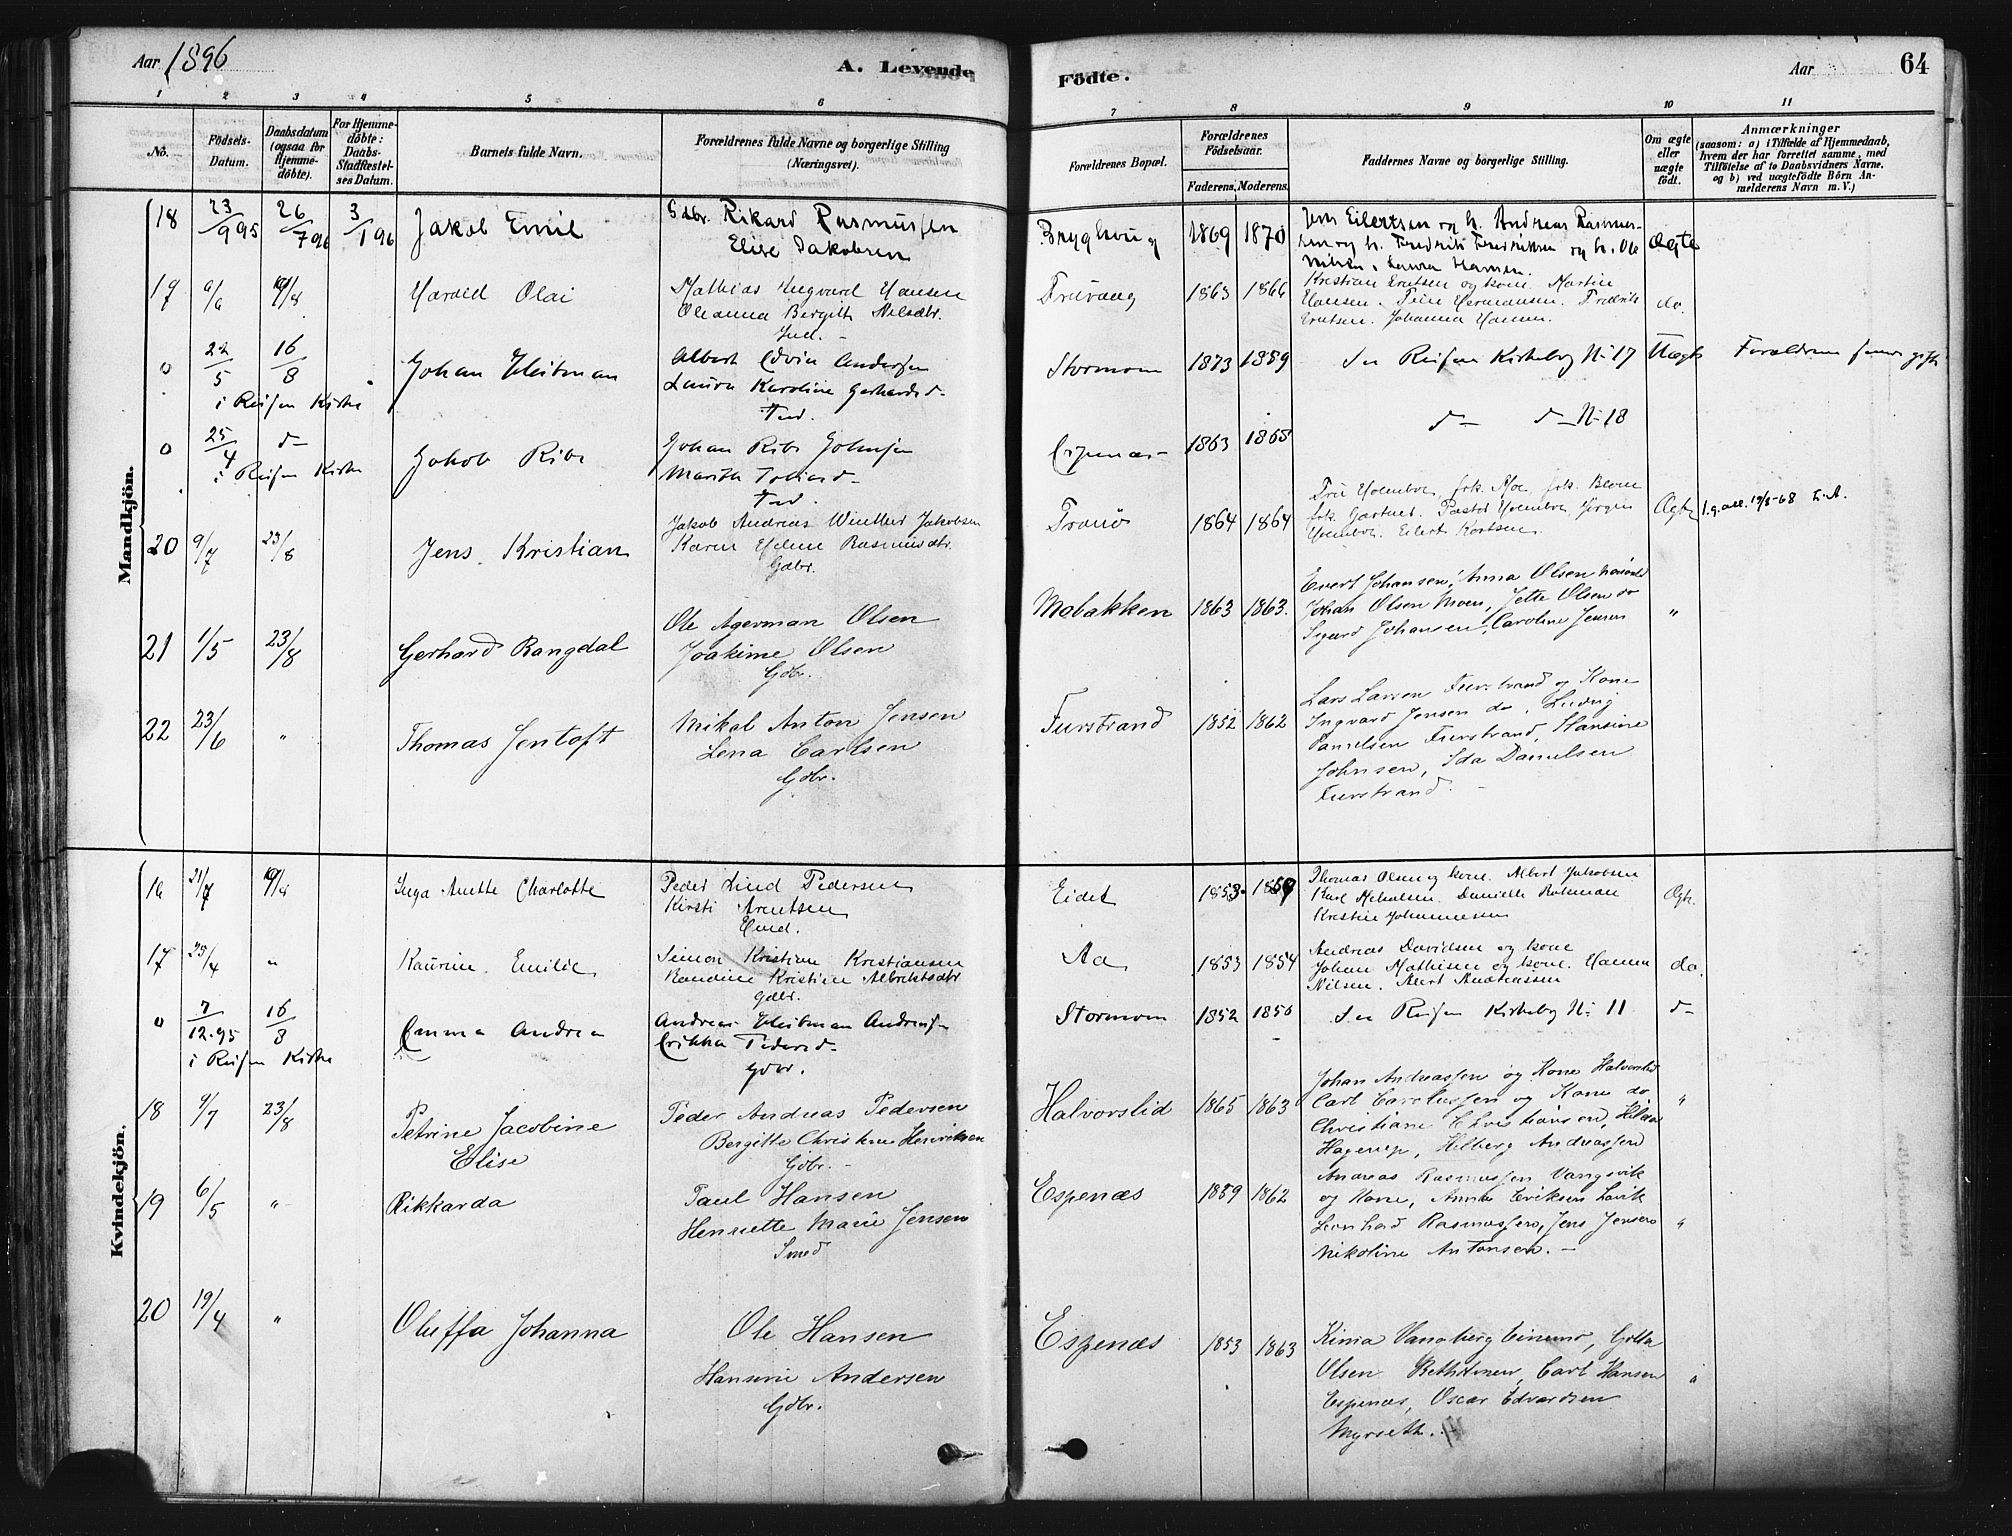 Aar 1896
A. Levende
Födte.
Aar
64
1 2 3 4 5 6 7 8 9 10 11
No.
Födsels-Datum.
Daabsdatum (ogsaa for Hjemmedöbte).
For Hjemmedöbte: Daabs-Stadfæstelses Datum.
Barnets fulde Navn.
Forældrenes fulde Navne og borgerlige Stilling (Næringsvei).
Forældrenes Bopæl.
Forældrenes Födselsaar.
Faderens. Moderens.
Faddernes Navne og borgerlige Stilling.
Om ægte eller uægte födt.
Anmærkninger
(saasom: a) i Tilfælde af Hjemmedaab, hvem der har forrettet samme, med Tilföielse af to Daabsvidners Navne, og b) ved uægtefödte Börn Anmelderens Navn m. V.)
Mandkjön.
18 23/9 95 26/7 96 3/1 96 Jakob Emil Gdbr. Rikard Rasmussen
Elise Jakobsen
1869 1870 Jens Eilertsen og h. Andreas Rasmus-
sen og h. Fredrik Fredriksen og h. Ole
Nilsen, Laura Hansen. Ægte
19 6/6 9/8 Harald Olai Mathias Ingvard Hansen
Oleanna Bergitte Nilsdtr.
Ind.
1863 1866 Kristian Arntsen og kone. Martin
Hansen. Hermansen. Fredrik
Arntsen. Johanna Hansen. do.
" 22/5 16/8 Johan Heitman Albert Edvin Andersen
Laura Karoline Gerhardsd.
Ind.
i Reisen Kirke
Stormoen 1873 1859 Se Reisen Kirkebog N: 17 Uægte Forældrene senere gift
" 25/4 d– Jakob Ribe Johan Ribe Johnsen
Marith Tobiasd.
Ind.
i Reisen Kirke
Espenæs 1863 1868 d– d– N: 18
20 9/7 23/8 Jens Kristian Jakob Andreas Winther Jakobsen
Karen Helene Rasmusdtr.
Gdbr.
Tranö 1864 1864 Fru Holmboe, frk. Moe, frk. Blom
frk. Gartner. Pastor Holmboe, Jörgen
Holmboe. Eilert Kortsen. Ægte
21 1/5 23/8 Gerhard Rangdal Ole Agerman Olsen
Joakime Olsen
Gdbr.
Mobakken 1863 1863. Evert Johansen, Anna Olsen
Johan Olsen Moen, Jette Olsen do
Sigurd Johansen, Caroline Jensen "
22 23/6 " Thomas Jentoft Mikal Anton Jensen
Lena Carlsen
Gdbr.
Furstrand 1852 1862 Lars Larsen Furstrand og Kone
Ingvard Jensen do, Ludvig
Danielsen Furstrand, Hansine
Johnsen, Ida Danielsen
Furstrand.
Kvindekjön.
16 21/7 9/8 Inga Anette Charlotte Peder Lind Pedersen
Kirsti Arntsen
Eidet 1853 1859 Thomas Olsen og kone. Albert Jakobsen
Karl Mikalsen. Danielle
Kristine Johannessen Ægte.
17 25/4 " Kaurine Emilie Simon Kristian Kristiansen
Randine Kristine Albrigtsdtr
Gdbr.
Aa 1853 1854 Andreas Davidsen og kone
Johan Mathisen og kone. Hanna
Nilsen. Andreassen do.
" 7/12.95 16/8 Emma Andrea Andreas Heitman Andersen
Erikka Pedersd.
Gdbr.
i Reisen Kirke
Stormoen 1852 1850 Se Reisen Kirkebog N: 11 d–
18 9/7 23/8 Petrine Jacobine
Elise Peder Andreas Pedersen
Bergitte Christine Henriksen
Gdbr.
Halvorslid 1865 1863 Johan Andreassen og Kone Halvorslid
Carl og Kone do
Christiane Christiansen, Hilda
Hagerup, Hilberg Andreassen "
19 6/5 " Rikkarda Paul Hansen
Henriette Marie Jensen
Smed
Espenæs 1859 1862 Andreas Rasmussen Vangsvik
og Kone, Anna Eriksen Lavik
Leonhard Rasmussen, Jens Jensen
Nikoline Antonsen. "
20 19/4 " Oluffa Johanna Ole Hansen
Hansine Andersen
Gdbr.
Espenæs 1853 1863 Vangberg, Gitta
Olsen, Carl Hansen
Espenæs, Oscar Edvardsen
Myrseth. "